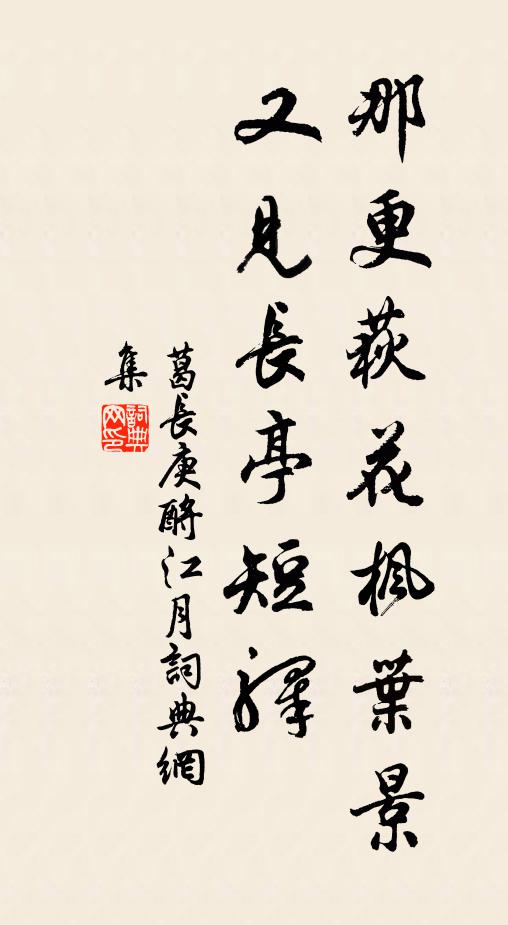 那更萩花楓葉景
又見長亭短驛
葛長庚酹江月詞典網
集
詞典
网印